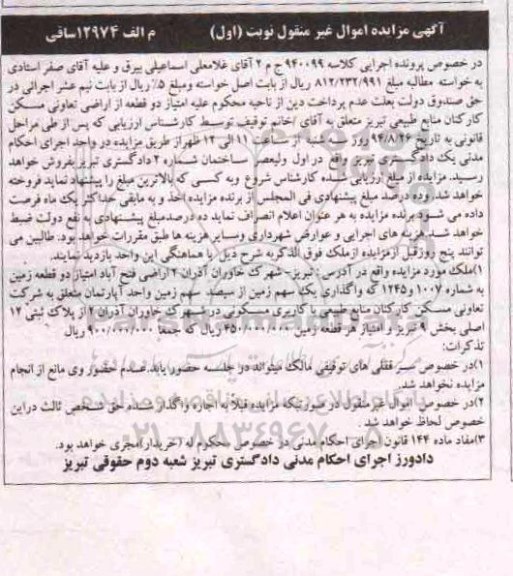 آگهی مزایده اموال غیر منقول نوبت (اول) م الف ۱۲۹۷۴ساقی
در خصوص پرونده اجرایی کلاسه ۹۴۰۰۹۹ ج م ۲ آقای غلامعلی اسماعیلی بیرق و علیه آقای صفر استادی
به خواسته مطالبه مبلغ ۸۱۲/۲۳۲/۹۹۱ ریال از بابت اصل خواسته ومبلغ ۵٪ ریال از بابت نیم عشر اجرائی در
حق صندوق دولت بعلت عدم پرداخت دین از ناحیه محکوم علیه امتیاز دو قطعه از اراضی تعاونی مسکن
کارکنان منابع طبیعی تبریز متعلق به آقای /خانم توقیف توسط کارشناس ارزیابی که پس از طی مراحل
قانونی به تاریخ روز سه شنبه از ساعت ۱۱ الی ۱۲ ظهراز طریق مزایده در واحد اجرای احکام
مدنی یک دادگستری تبریز واقع در اول ولیعصر ساختمان شماره ۲ دادگستری تبریز بفروش خواهد
رسید. مزایده از مبلغ ارزیابی شده کارشناس شروع وبه کسی که بالاترین مبلغ را پیشنهاد نماید فروخته
خواهد شد. وده درصد مبلغ پیشنهادی فی المجلس از برنده مزایده اخذ و به مابقی حداکثر یک ماه فرصت
داده می شود.برنده مزایده به هر عنوان اعلام انصراف نماید ده درصدمبلغ پیشنهادی به نفع دولت ضبط
خواهد شد.هزینه های اجرایی و عوارض شهرداری وسایر هزینه ها طبق مقررات خواهد بود. طالبین می
توانند پنج روزقبل ازمزایده ازملک فوق الذکربه شرح ذیل با هماهنگی این واحد بازدید نمایند.
۱)ملک مورد مزایده واقع در آدرس: تبریز- شهرک خاوران آذران ۲ اراضی فتح آباد امتیاز دو قطعه زمین
به شماره ۱۰۰۷ و ۱۲۴۵ که واگذاری یک سهم زمین از سیصد سهم زمین واحد آپارتمان متعلق به شرکت
تعاونی مسکن کارکنان منابع طبیعی با کاربری مسکونی در شهرک خاوران آذران ۲ از پلاک ثبتی ۱۲
اصلی بخش ۹ تبریز و امتیاز هر قطعه زمین ۴۵۰/۰۰۰/۰۰۰ ریال که جمعا ۹۰۰/۰۰۰/۰۰۰ ریال.
تذکرات:
۱)در خصوص سر قفلی های توقیفی مالک میتواند در جلسه حضور یابد.عدم حضور وی مانع از انجام
مزایده نخواهد شد.
۲)در خصوص اموال غیرمنقول در صورتیکه مزایده قبلا به اجاره واگذار شده حق شخص ثالث دراین
خصوص لحاظ خواهد شد .
۳)مفاد ماده ۱۴۴ قانون اجرای احکام مدنی در خصوص محکوم له (خریدار)مجری خواهد بود.
دادورز اجرای احکام مدنی دادگستری تبریز شعبه دوم حقوقی تبریز